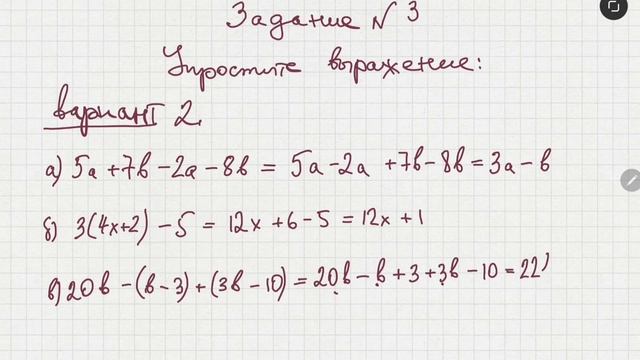 Задание № 3
Упростите выражение:
вариант 2.
а) 5a + 7b - 2a - 8b = 5a - 2a + 7b - 8b = 3a - b
б) 3(4x+2) - 5 = 12x + 6 - 5 = 12x + 1
в) 20b - (b - 3) + (3b - 10) = 20b - b + 3 + 3b - 10 = 22